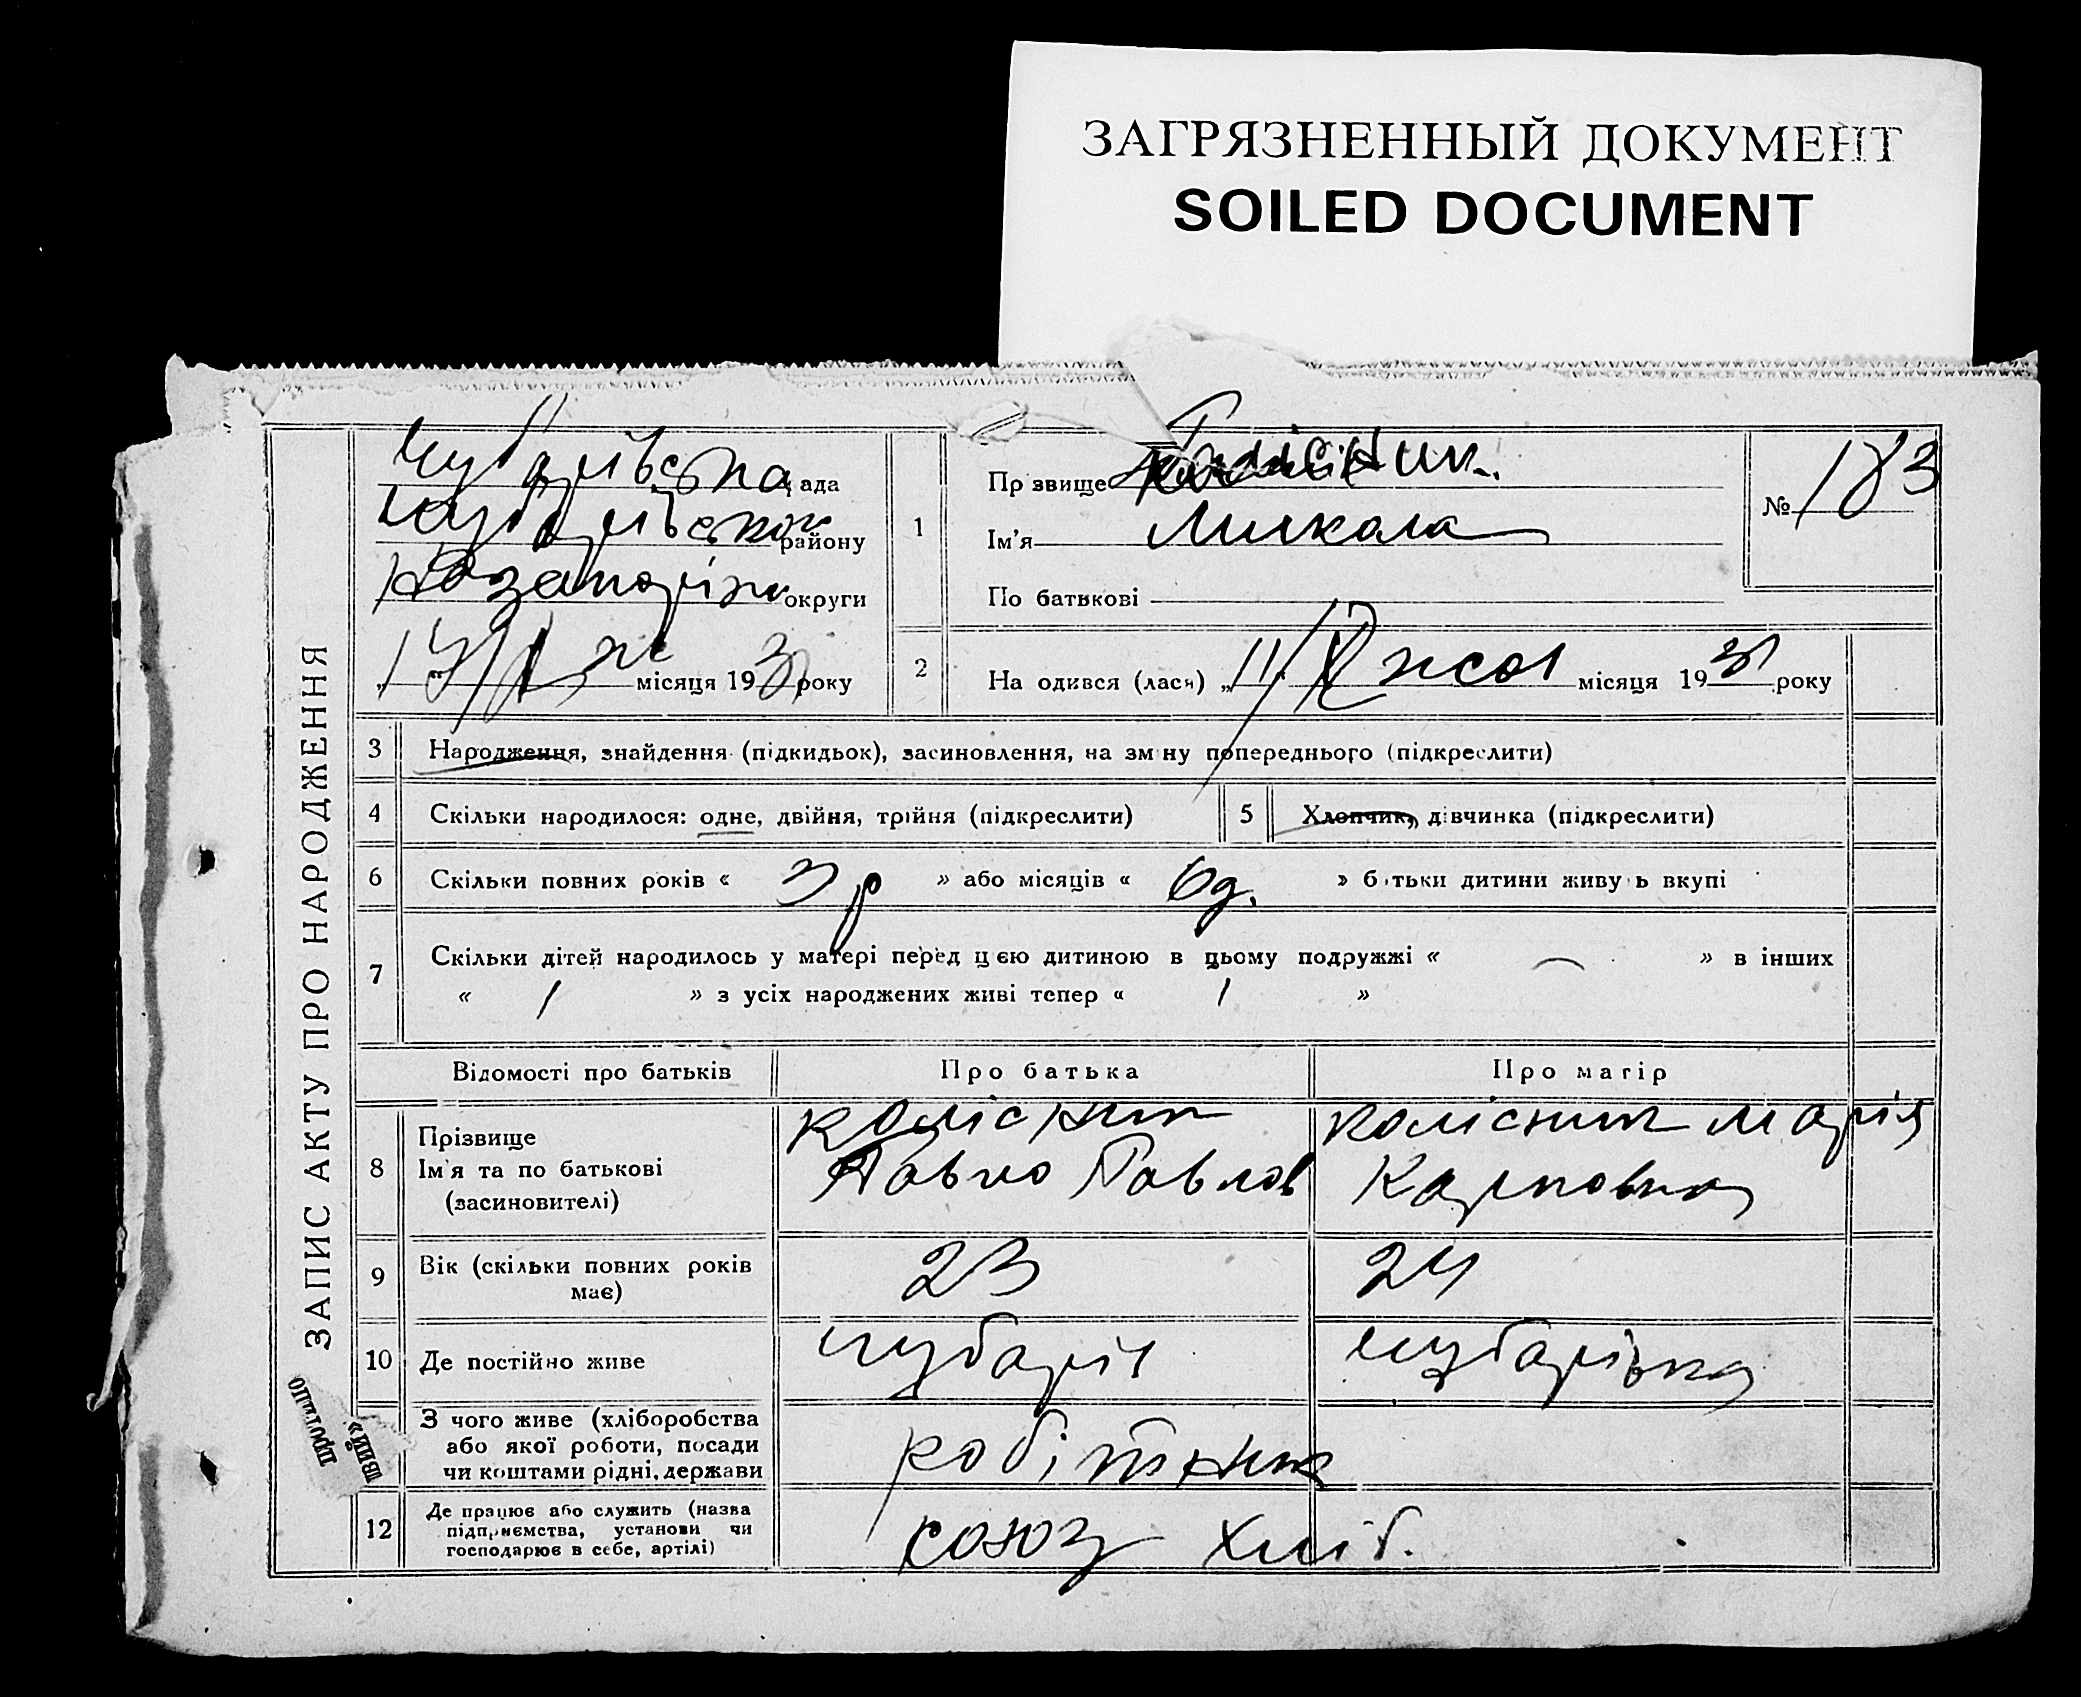 ЗАГРЯЗНЕННЫЙ ДОКУМЕНТ
SOILED DOCUMENT
ЗАПИС АКТУ ПРО НАРОДЖЕННЯ
Чубарівська рада
Чубарівськ району
Запоріжк округи
місяця 193 року
1
Прізвище Колісник.
Ім'я Микола
По батькові
№ 183
2
На одився (лася) „11/ місяця 1931 року
3 Народження, знайдення (підкидьок), засиновлення, на зміну попереднього (підкреслити)
4 Скільки народилося: одне, двійня, трійня (підкреслити)
5 Хлопчик, дівчинка (підкреслити)
6 Скільки повних років « 3 р » або місяців « » батьки дитини живуть вкупі
7 Скільки дітей народилось у матері перед цією дитиною в цьому подружжі « — » в інших
« 1 » з усіх народжених живі тепер « 1 »
Відомості про батьків Про батька Про матір
8 Прізвище
Ім'я та по батькові
(засиновителі)
Колісник
Павло Павлов
Колісник Марія
Карповна
9 Вік (скільки повних років
має)
23 24
10 Де постійно живе Чубарів Чубарівка
З чого живе (хліборобства
або якої роботи, посади
чи коштами рідні, держави
робітник
12 Де працює або служить (назва
підприємства, установи чи
господарює в себе, артілі)
союз хліб.